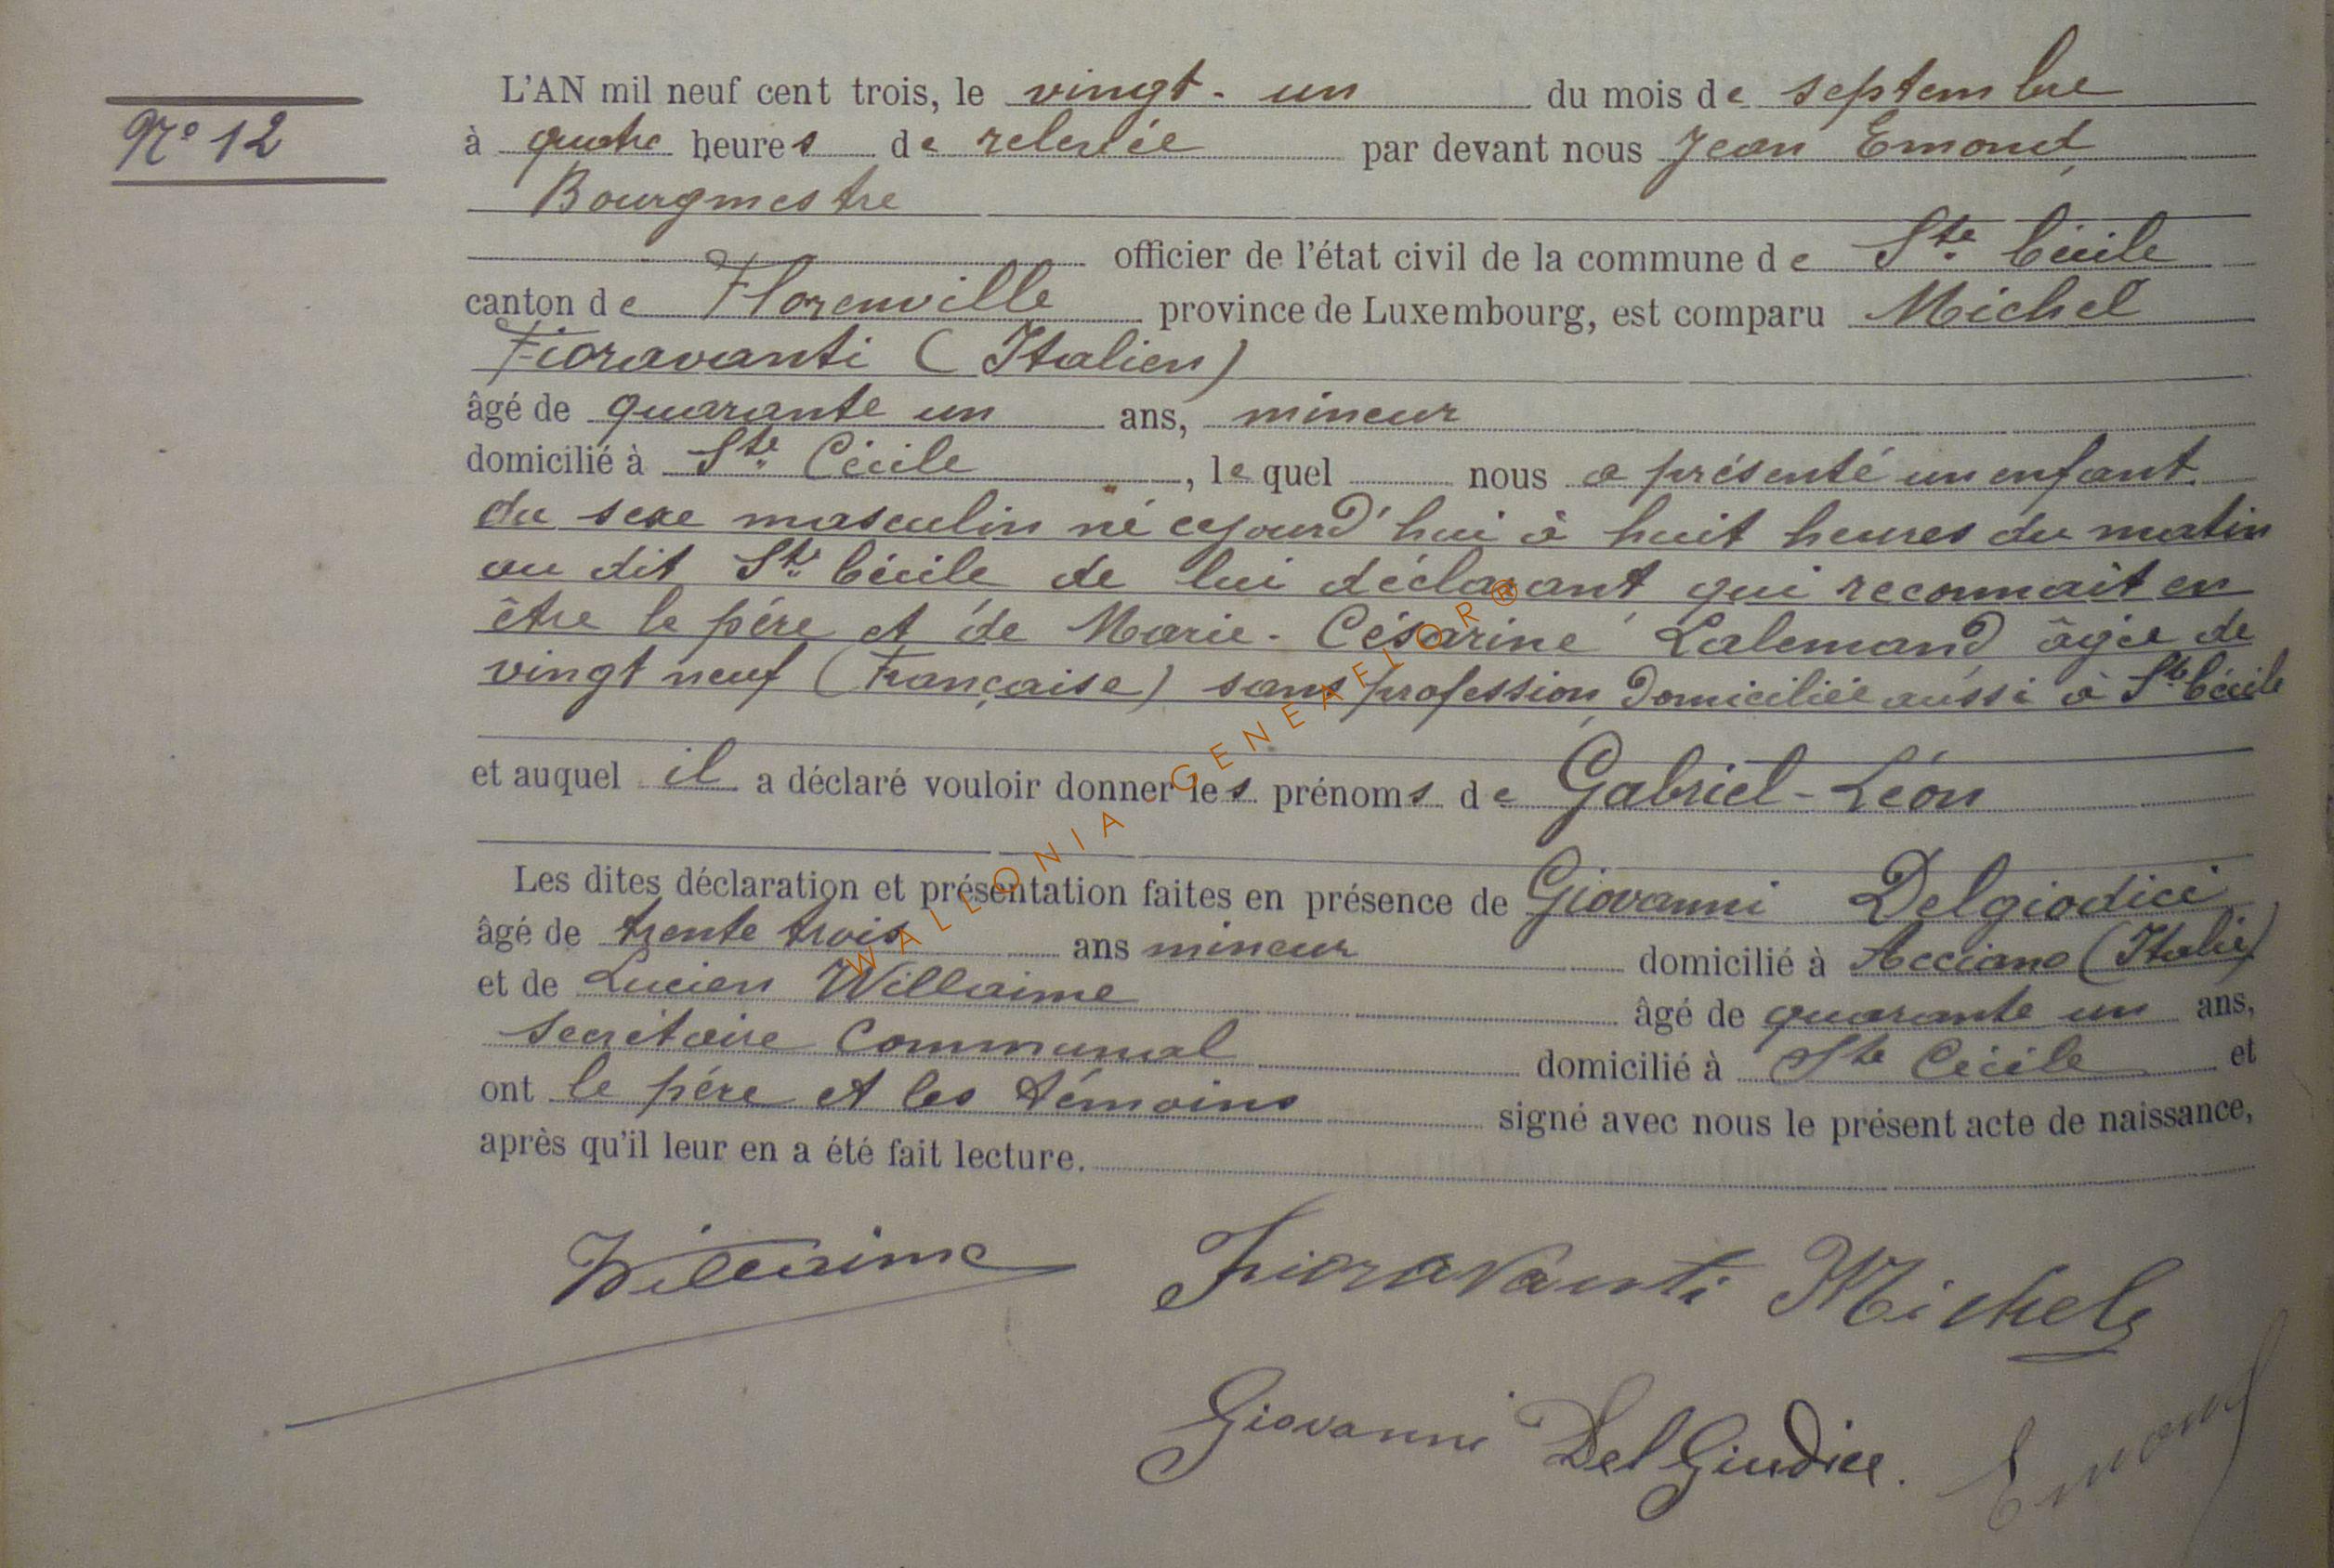 N° 12
L'AN mil neuf cent trois, le vingt-un du mois de septembre
à quatre heures de relevée par devant nous Jean Emond,
Bourgmestre
officier de l'état civil de la commune de Ste Cécile
canton de Florenville province de Luxembourg, est comparu Michel
Fioravanti (Italien)
âgé de quarante un ans, mineur
domicilié à Ste Cécile, lequel nous a présenté un enfant
du sexe masculin né cejourd'hui à huit heures du matin
au dit Ste Cécile de lui déclarant qui reconnait en
être le père et de Marie-Césarine Lalemand âgée de
vingt neuf (Française) sans profession, domiciliée aussi à Ste Cécile
et auquel il a déclaré vouloir donner les prénoms de Gabriel-Léon
Les dites déclaration et présentation faites en présence de Giovanni Delgiodici
âgé de trente trois ans mineur domicilié à Acciano (Italie)
et de Lucien Willaime âgé de quarante un ans,
secrétaire communal domicilié à Ste Cécile et
ont le père et les témoins signé avec nous le présent acte de naissance,
après qu'il leur en a été fait lecture.
Willaime Fioravanti Michele
Giovanni Del Giudice. Emond
WALLONIA GENEAFLOR®